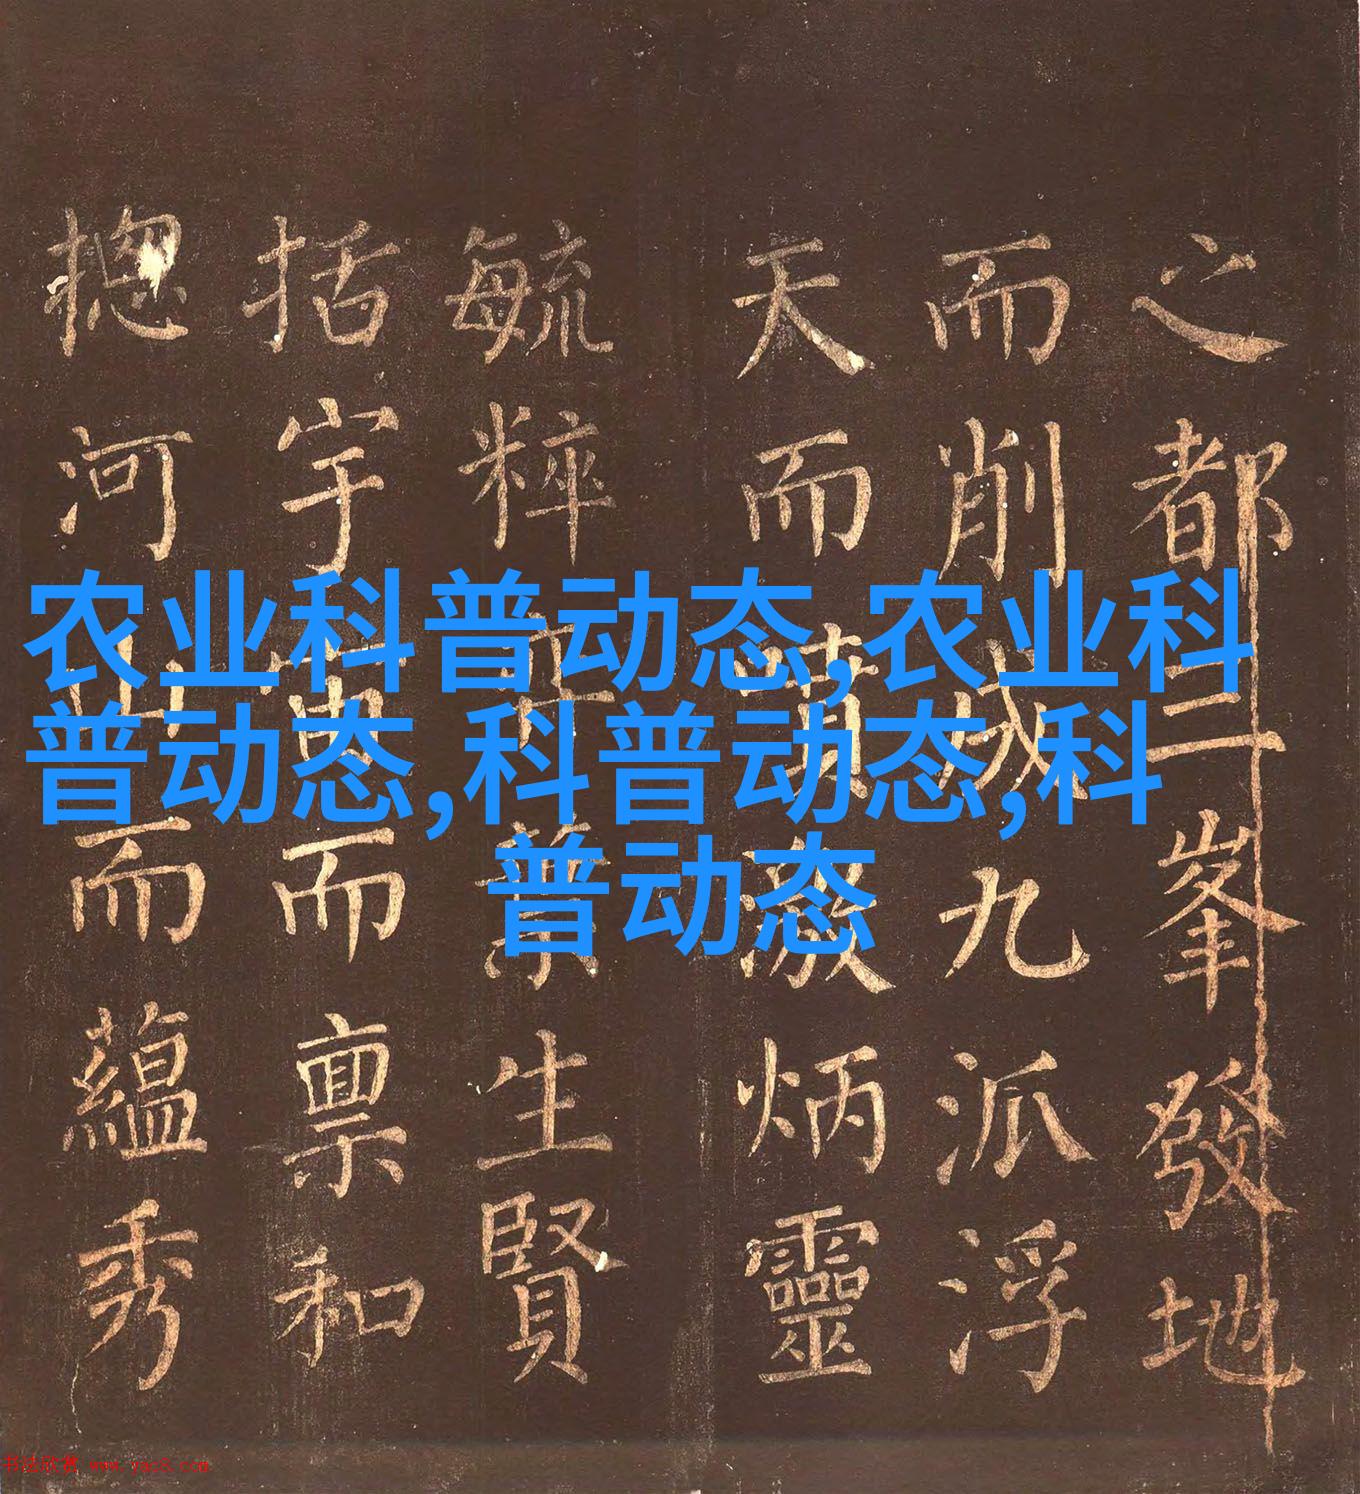 农业科普动态,农业科
普动态,科普动态,科
普动态
之都二峯發地
而削成九派浮
天而噴激炳靈
毓粹生賢
括宇宙而稟和
摠河山而蘊秀
书法欣赏 www.yac8.com